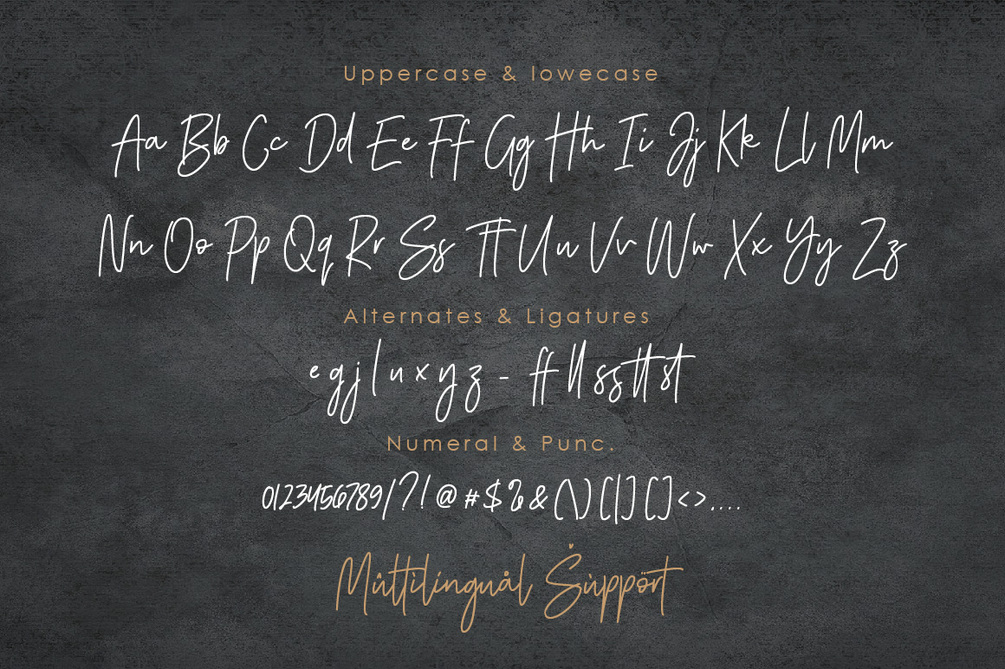 Uppercase & lowecase
Aa Bb Cc Dd Ee Ff Gg Hh Ii Jj Kk Ll Mm
Nn Oo Pp Qq Rr Ss Tt Uu Vv Ww Xx Yy Zz
Alternates & Ligatures
e g j l u x y z - ff ll ss tt st
Numeral & Punc.
0123456789/?!@#$%&(\)[|]{}<>....
Múltilínguål Śúppört